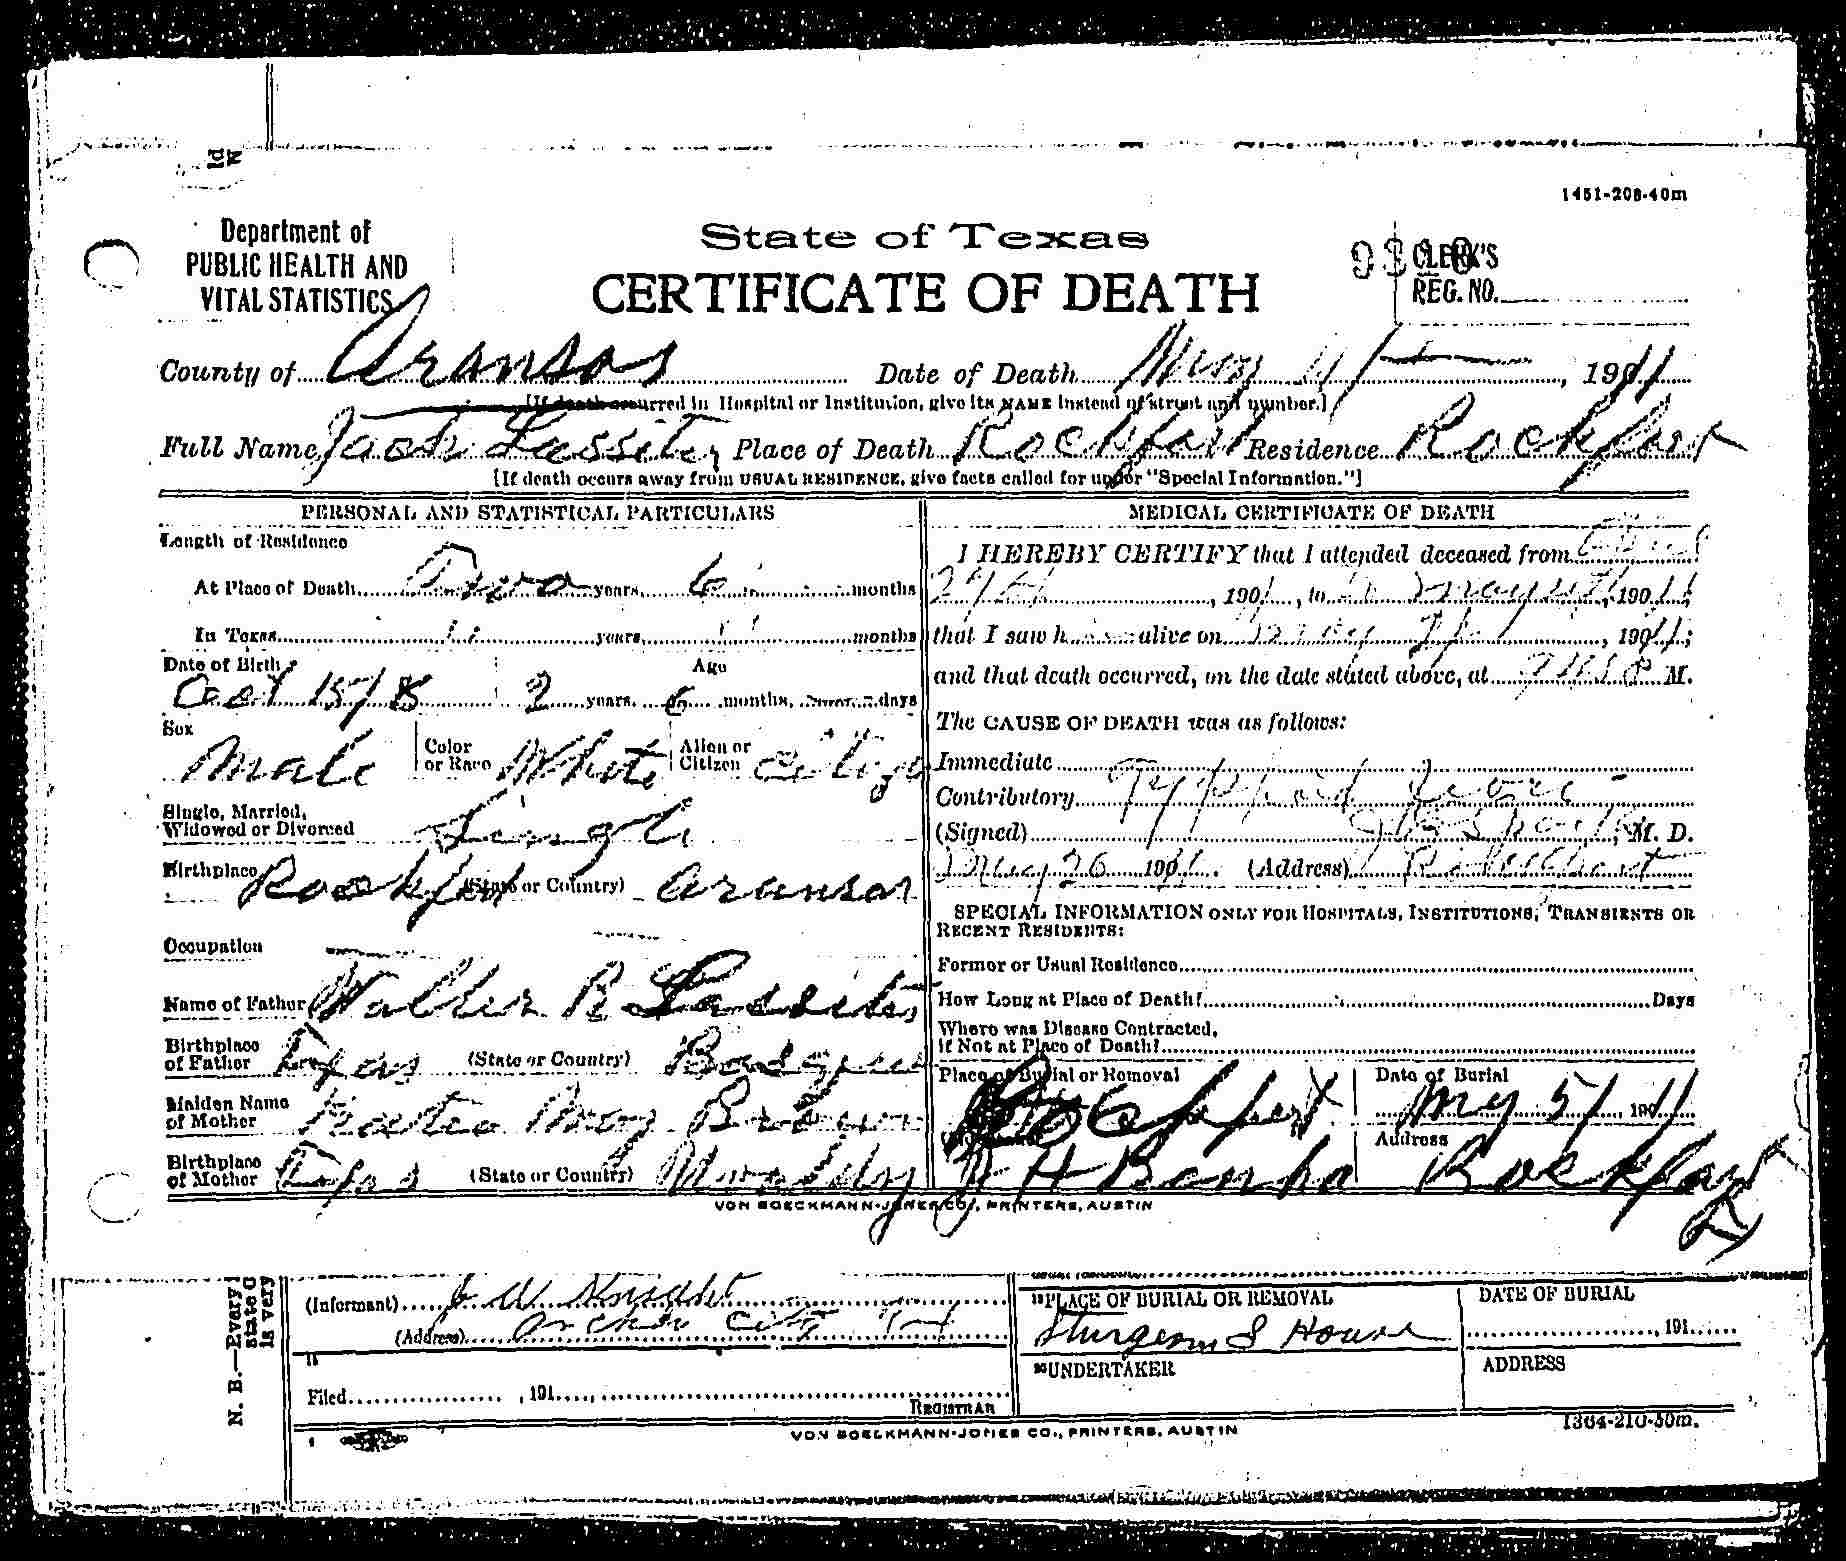 1451-208-40m
Department of
PUBLIC HEALTH AND
VITAL STATISTICS
State of Texas
CERTIFICATE OF DEATH
CLERK'S
REG. NO.
County of Aransas Date of Death May 4 1911
[If death occurred in Hospital or Institution, give its NAME instead of street and number.]
Full Name Jack Lassiter Place of Death Rockport Residence Rockport
[If death occurs away from USUAL RESIDENCE, give facts called for under "Special Information."]
PERSONAL AND STATISTICAL PARTICULARS
Length of Residence
At Place of Death Two years 6 months
In Texas " years " months
Date of Birth Age
Oct 15/8 2 years, 6 months, days
Sex Male Color or Race White Alien or Citizen
Single, Married,
Widowed or Divorced Single
Birthplace Rockport (State or Country) Aransas
Occupation
Name of Father Walter R Lassiter
Birthplace
of Father Texas (State or Country) Bosque
Maiden Name
of Mother Katie May Brown
Birthplace
of Mother Texas (State or Country)
MEDICAL CERTIFICATE OF DEATH
I HEREBY CERTIFY that I attended deceased from
29th, 1901, to May 4th, 1901;
that I saw h alive on May, 1901;
and that death occurred, on the date stated above, at M.
The CAUSE OF DEATH was as follows:
Immediate
Contributory Typhoid Fever
(Signed) M. D.
May 26 1901. (Address)
SPECIAL INFORMATION ONLY FOR HOSPITALS, INSTITUTIONS, TRANSIENTS OR
RECENT RESIDENTS:
Former or Usual Residence
How Long at Place of Death? Days
Where was Disease Contracted,
If Not at Place of Death?
Place of Burial or Removal Date of Burial
Rockport May 5/ 1911
Address
Rockport
VON BOECKMANN-JONES CO., PRINTERS, AUSTIN
N. B.—Every
state C
is very
(Informant) Knight
(Address) Archer City Tx
Filed , 191
REGISTRAR
19 PLACE OF BURIAL OR REMOVAL DATE OF BURIAL
, 191
20 UNDERTAKER ADDRESS
Sturgeon & House
VON BOECKMANN-JONES CO., PRINTERS, AUSTIN
1364-210-50m.